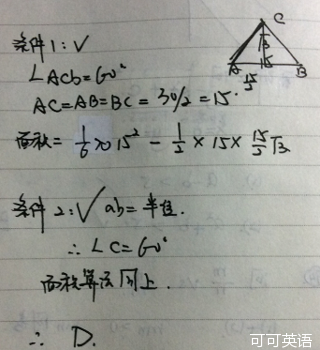 条件1:√
C
∠ACb=60°
A
B
AC=AB=BC=30/2=15.
面积= 1/6 π 15² - 1/2 × 15 × 15/2 √3
条件2:√ ab=半径.
∴ ∠C=60°
面积算法同上.
∴ D.
可可英语